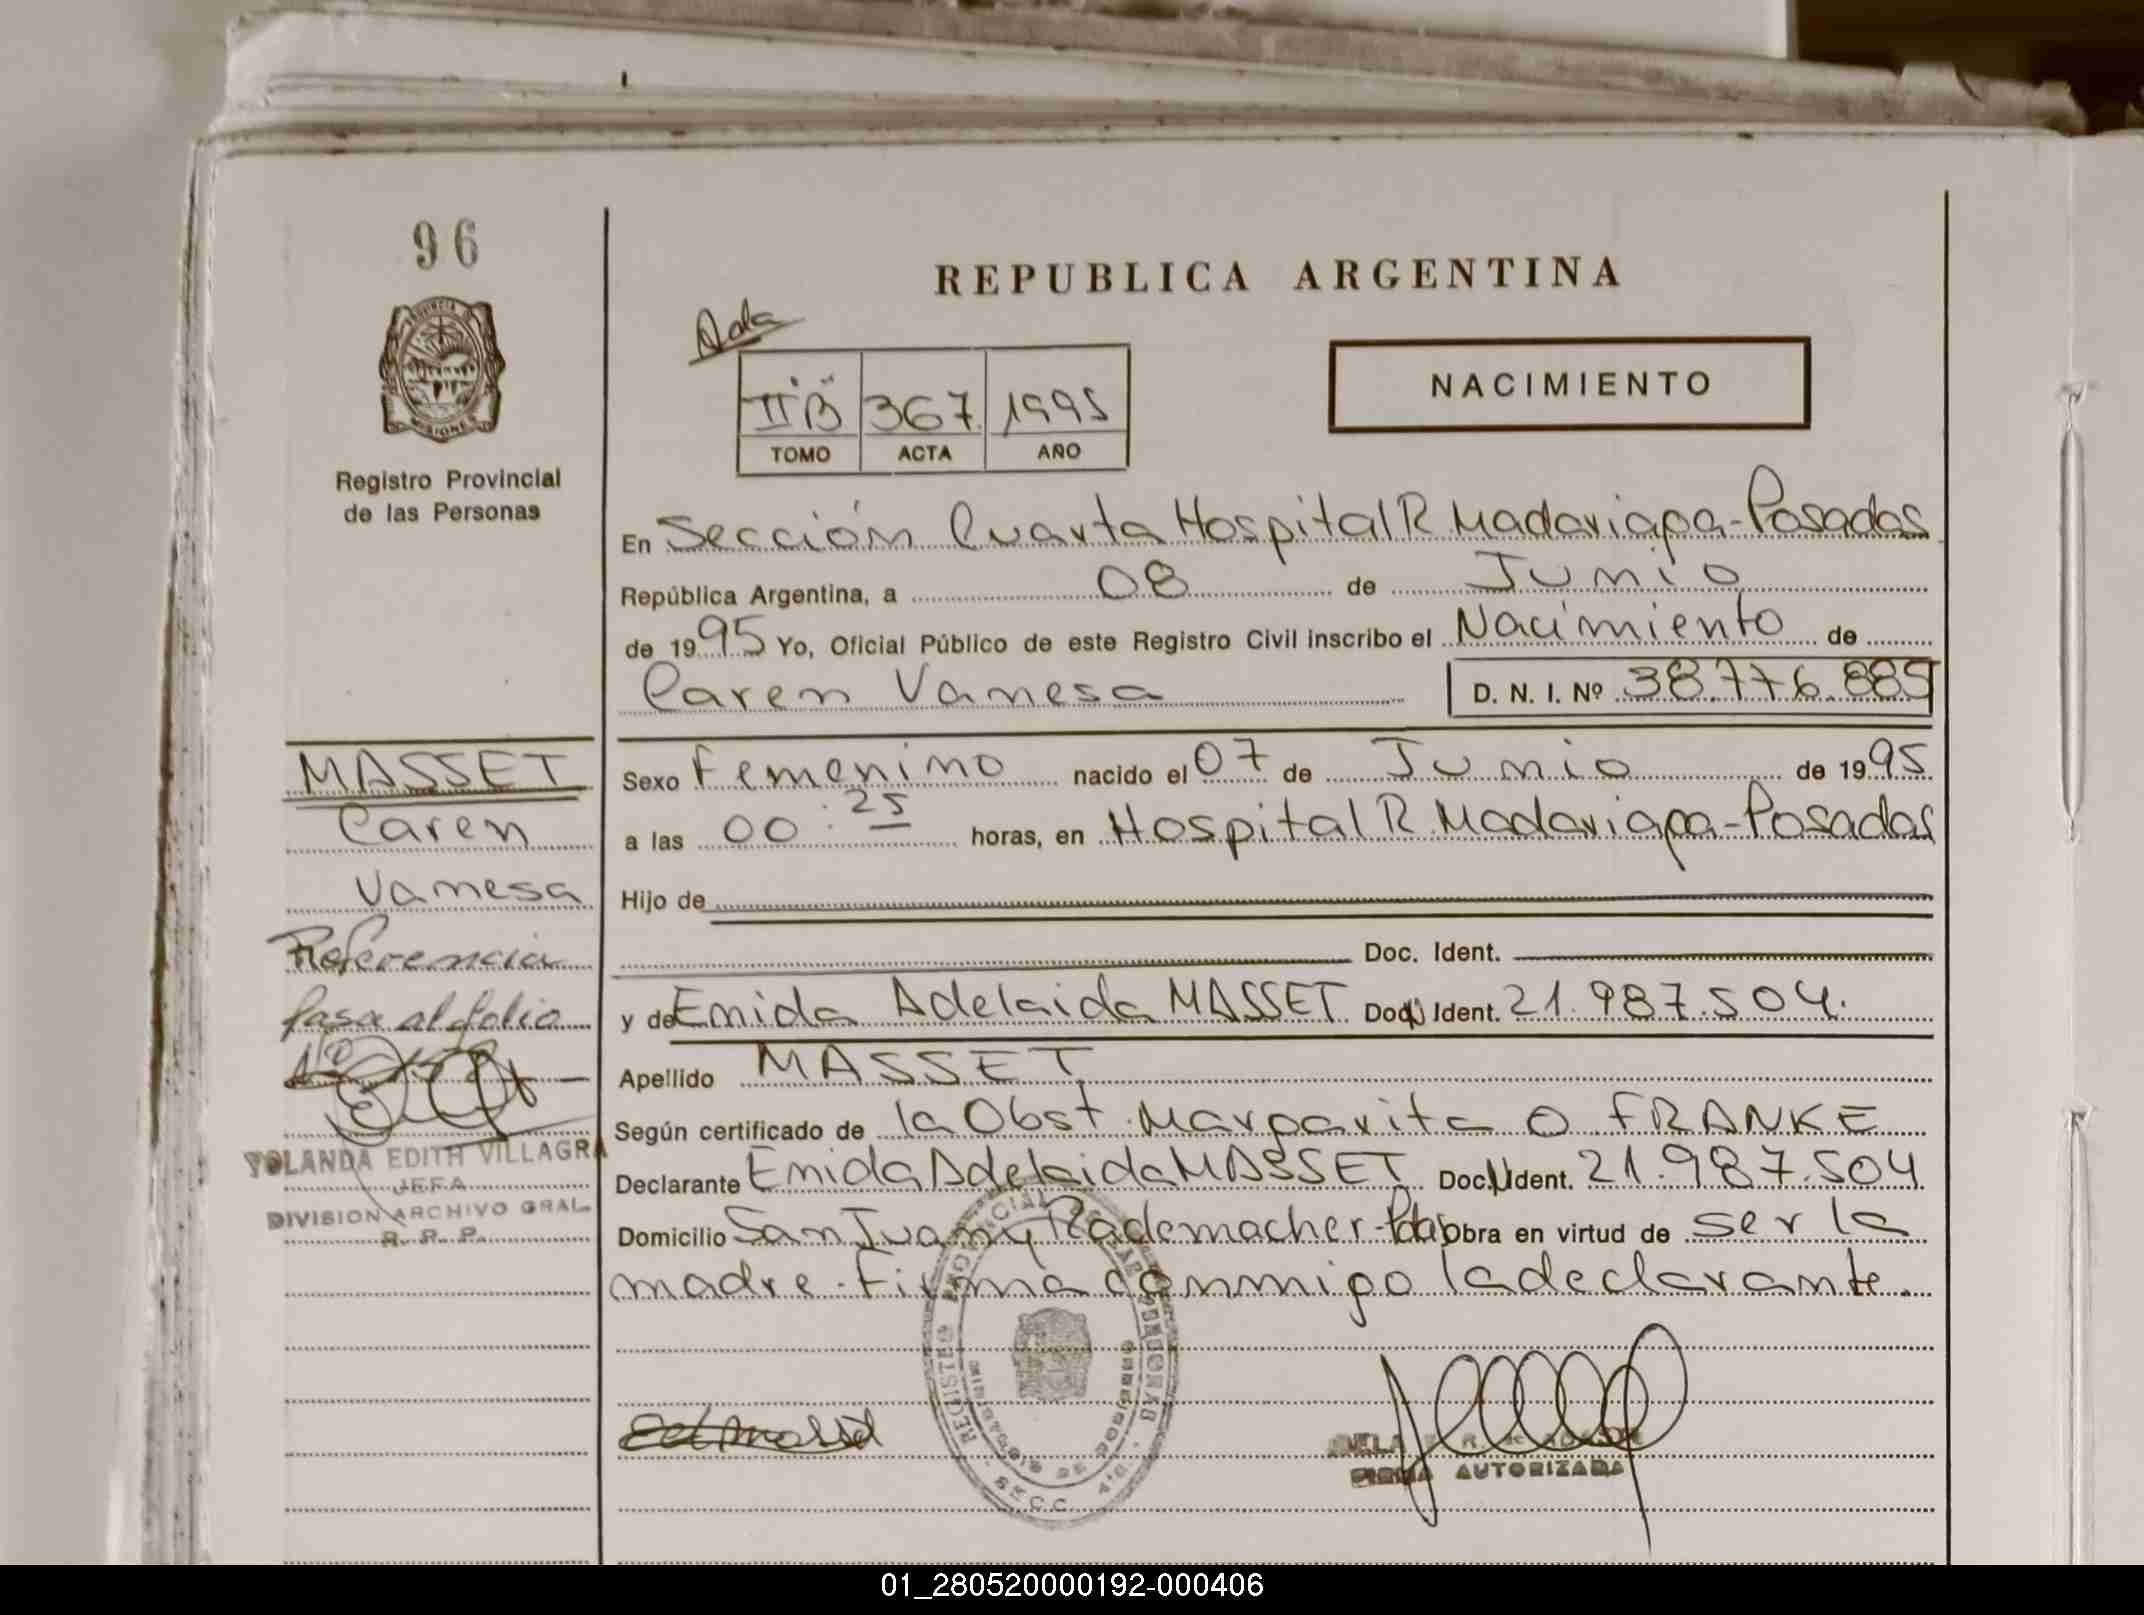 96
REPUBLICA ARGENTINA
NACIMIENTO
II "B" 367 1995
TOMO ACTA AÑO
Registro Provincial
de las Personas
En Sección Cuarta Hospital R Madariaga-Posadas
República Argentina, a 08 de Junio
de 1995 Yo, Oficial Público de este Registro Civil inscribo el Nacimiento de
Caren Vanesa D. N. I. Nº 38.776.885
MASSET
Caren
Vanesa
Referencia
pasa al folio
Nº
YOLANDA EDITH VILLAGRA
JEFA
DIVISION ARCHIVO GRAL.
R. P. P.
Sexo Femenino nacido el 07 de Junio de 1995
a las 00:25 horas, en Hospital R Madariaga-Posadas
Hijo de
Doc. Ident.
y de Enida Adelaida MASSET Doc. Ident. 21.987.504.
Apellido MASSET
Según certificado de la Obst. Margarita O FRANKE
Declarante Enida Adelaida MASSET Doc. Ident. 21.987.504
Domicilio San Juan y Rademacher-Pdas Obra en virtud de ser la
madre. Firma conmigo la declarante.
FIRMA AUTORIZADA
01_280520000192-000406